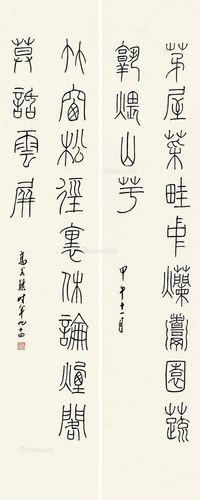 茅屋菜畦中爛煮園蔬
孰煨山芋
甲午十一月
竹窗松徑裏休論煙閣
莫話雲屏
高式熊時年九十四